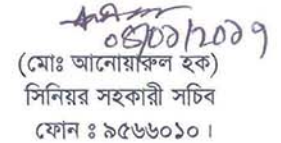 ০৪/০১/২০১৭
(মোঃ আনোয়ারুল হক)
সিনিয়র সহকারী সচিব
ফোন ঃ ৯৫৬৬০১০।